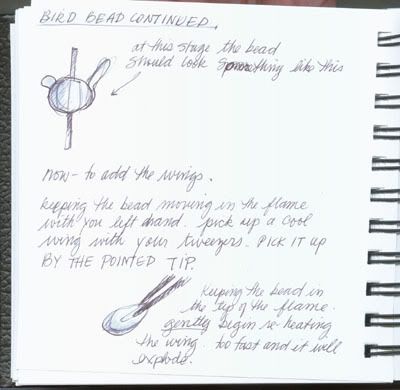 BIRD BEAD CONTINUED.
at this stage the bead
should look something like this
now - to add the wings.
keeping the bead moving in the flame
with you left hand. pick up a cool
wing with your tweezers. PICK IT UP
BY THE POINTED TIP.
keeping the bead in
the tip of the flame.
gently begin re-heating
the wing. too fast and it will
explode.